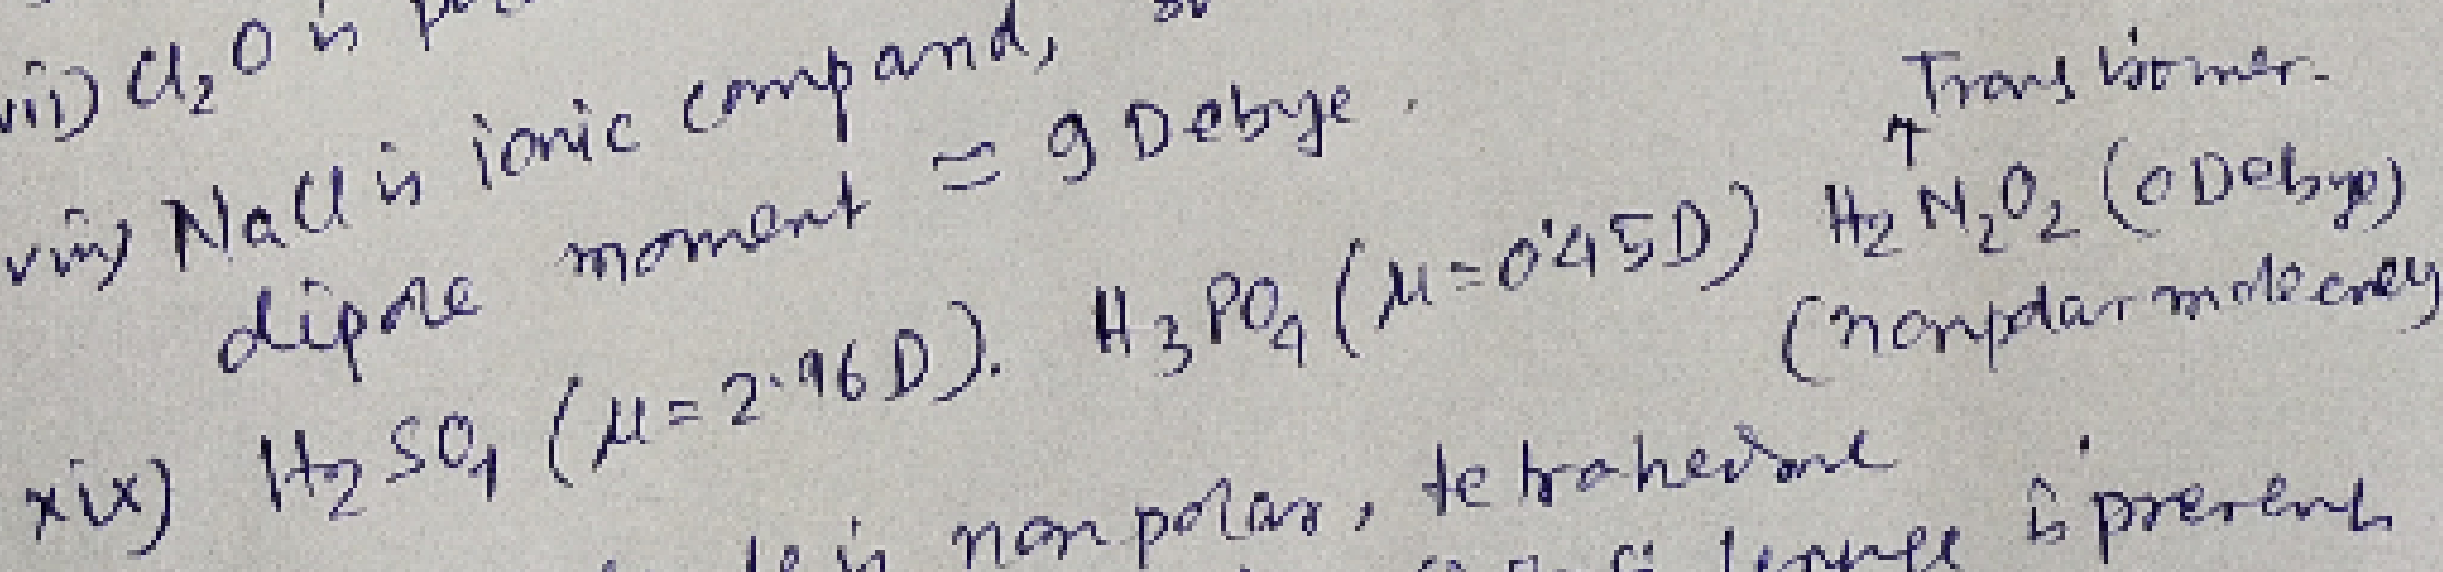 vii) Cl₂O is
viii) NaCl is ionic compand,
dipole moment ≃ 9 Debye.
Trans isomer.
xix) H₂SO₄ (μ=2.96D). H₃PO₄ (μ=0.45D) H₂N₂O₂ (0 Debye)
(nonpolar molecule)
is nonpolar, tetrahedral
is present